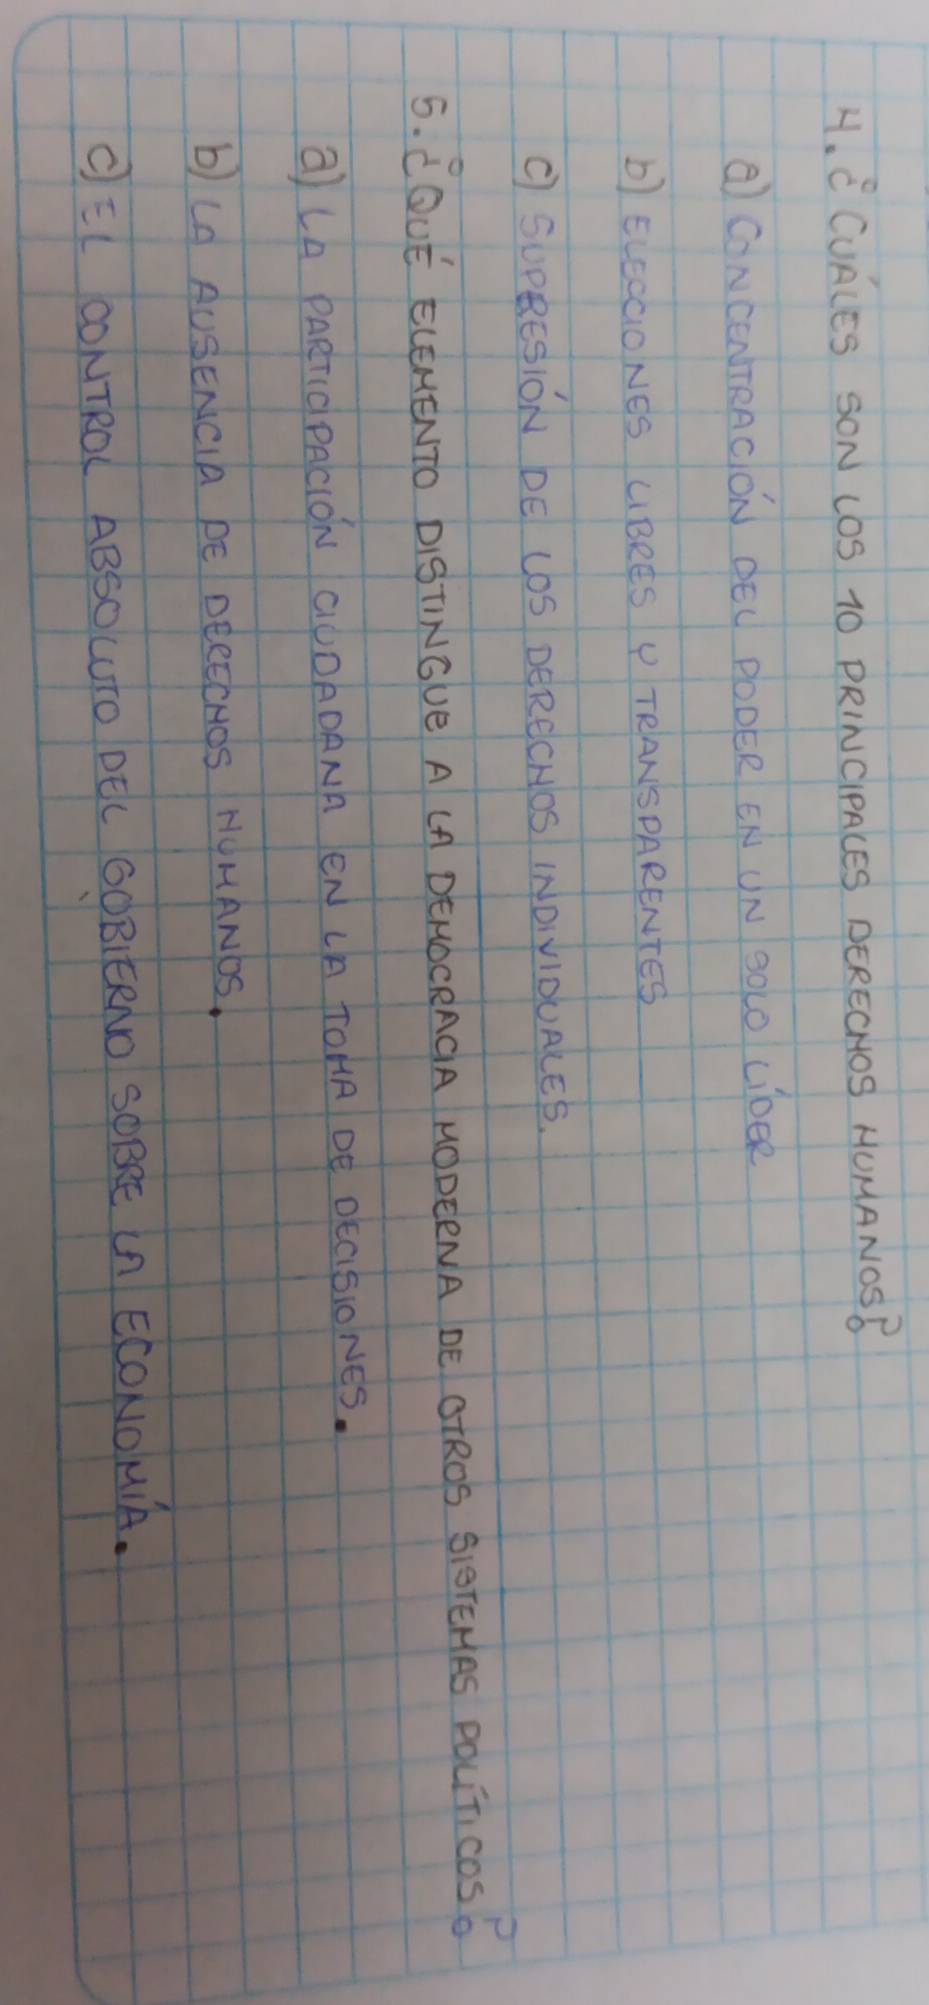 4. ¿CUÁLES SON LOS 10 PRINCIPALES DERECHOS HUMANOS?
a) CONCENTRACIÓN DEL PODER EN UN SOLO LÍDER
b) ELECCIONES LIBRES Y TRANSPARENTES
c) SUPRESIÓN DE LOS DERECHOS INDIVIDUALES.
5. ¿QUÉ ELEMENTO DISTINGUE A LA DEMOCRACIA MODERNA DE OTROS SISTEMAS POLÍTICOS?
a) LA PARTICIPACIÓN CIUDADANA EN LA TOMA DE DECISIONES.
b) LA AUSENCIA DE DERECHOS HUMANOS.
c) EL CONTROL ABSOLUTO DEL GOBIERNO SOBRE LA ECONOMÍA.